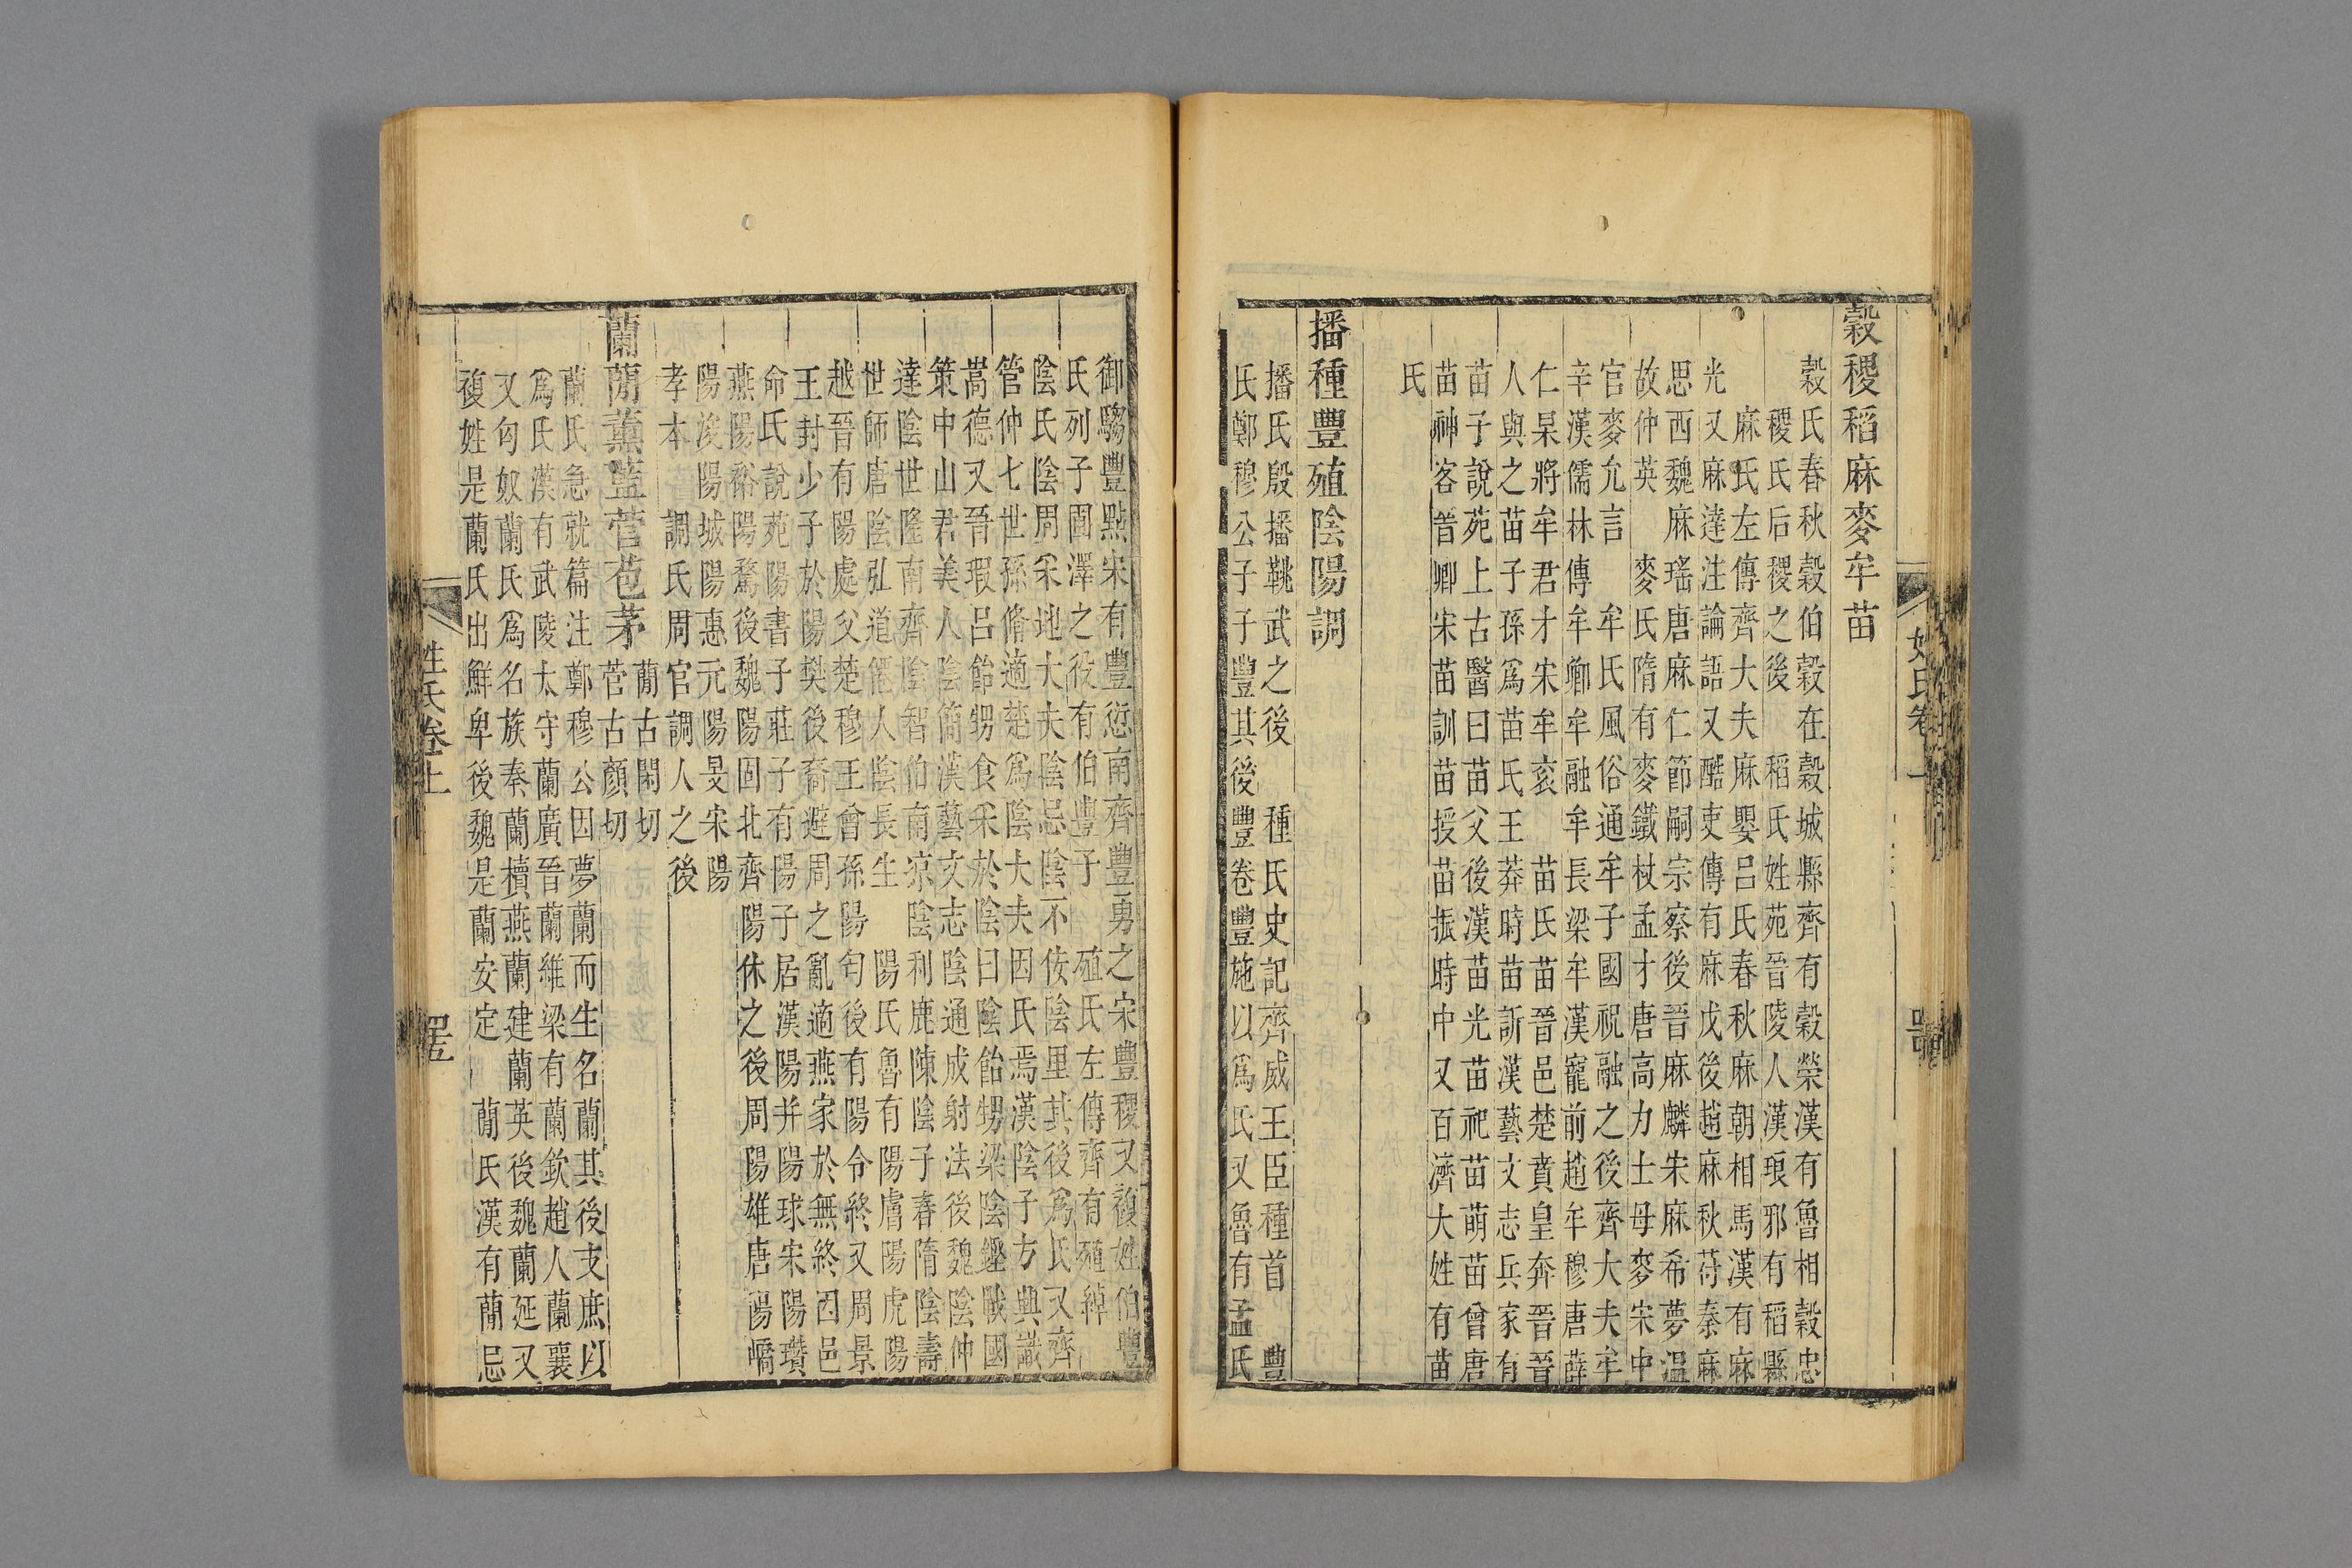 穀稷稻麻麥牟苗
穀氏春秋穀伯穀在穀城縣齊有穀榮漢有魯相穀忠
稷氏后稷之後　稻氏姓苑晉陵人漢琅邪有稻縣
麻氏左傳齊大夫麻嬰呂氏春秋麻朝相馬漢有麻
光又麻達注論語又酷吏傳有麻戊後趙麻秋苻秦麻
思西魏麻瑤唐麻仁節嗣宗察後晉麻麟宋麻希夢溫
故仲英　麥氏隋有麥鐵杖孟才唐高力士母麥宋中
官麥允言　牟氏風俗通牟子國祝融之後齊大夫牟
辛漢儒林傳牟卿牟融牟長梁牟漢寵前趙牟穆唐薛
仁杲將牟君才宋牟袞　苗氏苗晉邑楚賁皇奔晉晉
人與之苗子孫爲苗氏王莽時苗訢漢藝文志兵家有
苗子說苑上古醫曰苗父後漢苗光苗祀苗萌苗曾唐
苗神客晉卿宋苗訓苗授苗振時中又百濟大姓有苗
氏
播種豐殖陰陽調
播氏殷播鞉武之後　種氏史記齊威王臣種首　豐
氏鄭穆公子子豐其後豐卷豐施以爲氏又魯有孟氏
御騶豐點宋有豐愆南齊豐勇之宋豐稷又複姓伯豐
氏列子圃澤之役有伯豐子　殖氏左傳齊有殖綽
陰氏陰周采地大夫陰忌陰不佞陰里其後爲氏又齊
管仲七世孫脩適楚爲陰大夫因氏焉漢陰子方興識
嵩德又晉瑕呂飴甥食采於陰曰陰飴甥梁陰鏗戰國
策中山君美人陰簡漢藝文志陰通成射法後魏陰仲
達陰世隆南齊陰智伯南涼陰利鹿陳陰子春隋陰壽
世師唐陰弘道僊人陰長生　陽氏魯有陽膚陽虎陽
越晉有陽處父楚穆王會孫陽匄後有陽令終又周景
王封少子於陽樊後裔避周之亂適燕家於無終因邑
命氏說苑陽書子莊子有陽子居漢陽并陽球宋陽瓚
燕陽裕陽騖後魏陽固北齊陽休之後周陽雄唐陽嶠
陽浚陽城陽惠元陽旻宋陽
孝本　調氏周官調人之後
蘭蕑薰藍菅苞茅
蕑古閑切
菅古顏切
蘭氏急就篇注鄭穆公因夢蘭而生名蘭其後支庶以
爲氏漢有武陵太守蘭廣晉蘭維梁有蘭欽趙人蘭襄
又匈奴蘭氏爲名族秦蘭櫝燕蘭建蘭英後魏蘭延又
複姓是蘭氏出鮮卑後魏是蘭安定　蕑氏漢有蕑忌
姓氏卷上